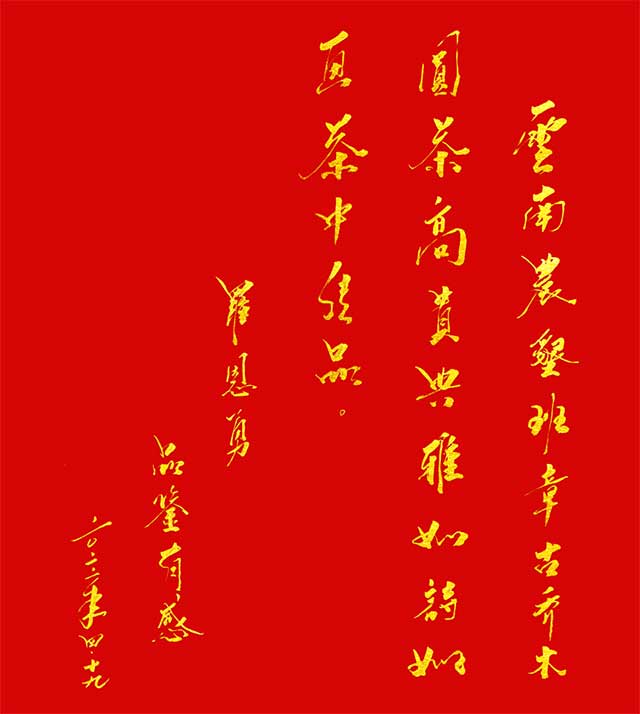 雲南農墾班章古乔木
圓茶高貴典雅如詩如
画茶中佳品。
羅恩勇
品鑒有感
二〇二二年四.十九